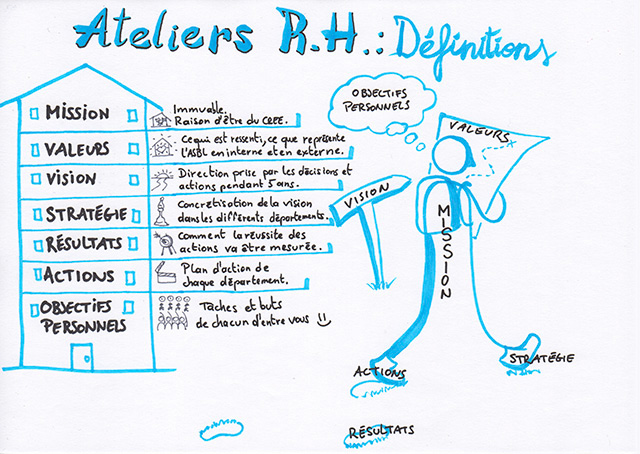 Ateliers R.H.: Définitions
MISSION
Immuable.
Raison d'être du CREE.
VALEURS
Ce qui est ressenti, ce que représente
l'ASBL en interne et en externe.
VISION
Direction prise par les décisions et
actions pendant 5 ans.
STRATÉGIE
Concrétisation de la vision
dans les différents départements.
RÉSULTATS
Comment la réussite des
actions va être mesurée.
ACTIONS
Plan d'action de
chaque département.
OBJECTIFS
PERSONNELS
Tâches et buts
de chacun d'entre vous
OBJECTIFS
PERSONNELS
VALEURS
VISION
MISSION
ACTIONS
STRATÉGIE
RÉSULTATS